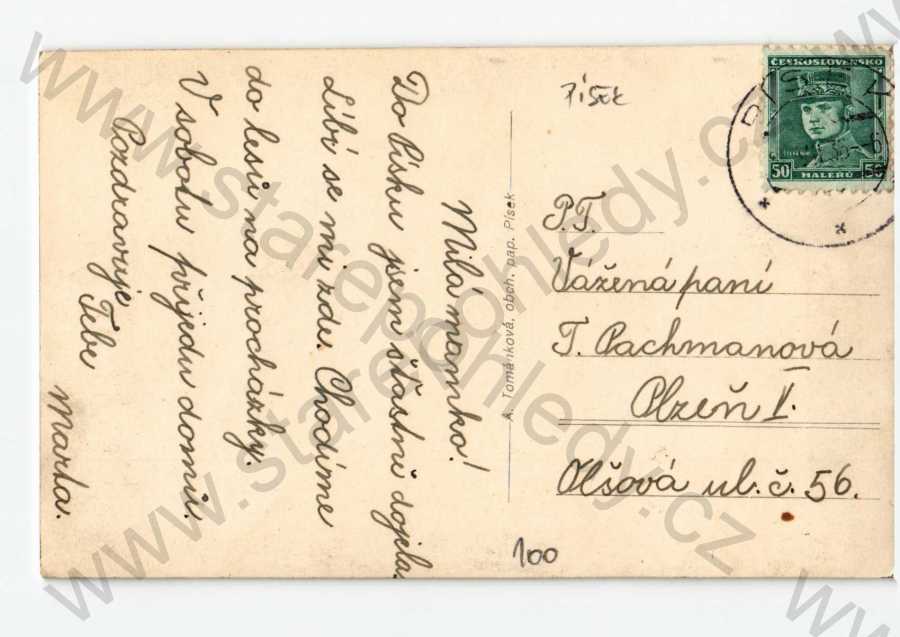 Milá mamko!
Do Písku jsem šťastně dojela.
Líbí se mi zde. Chodíme
do lesů na procházky.
V sobotu přijedu domů.
Pozdravuje Tebe
Marta.
A. Tománková, obch. pap. Písek
PÍSEK
ČESKOSLOVENSKO
50 HALÉŘŮ 50
P.T.
Vážená paní
T. Pachmanová
Plzeň II.
Olšová ul. č. 56.
100
www.starepohledy.cz
www.starepohledy.cz